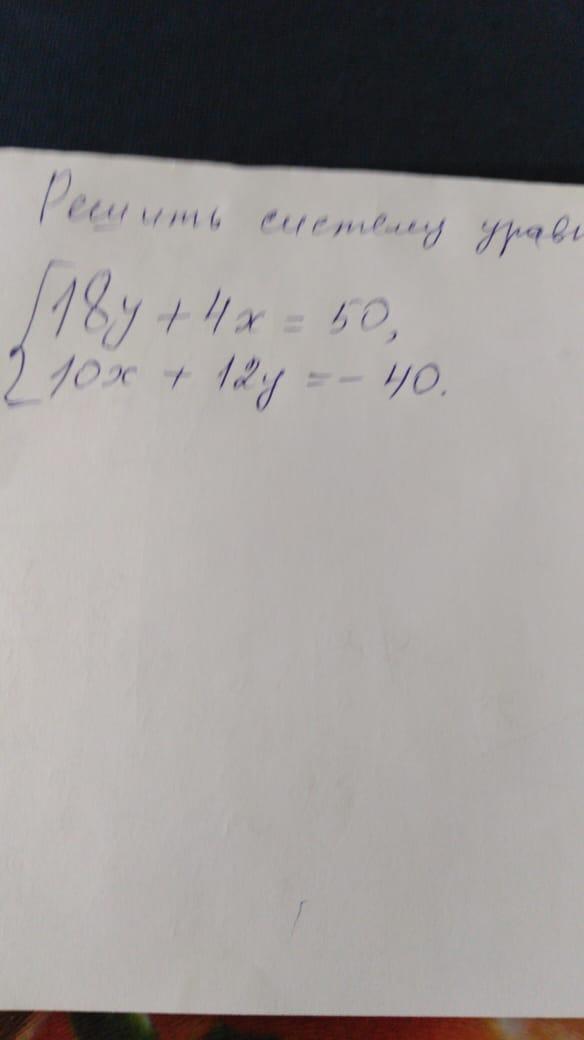 Решить систему
18y + 4x = 50,
10x + 12y = - 40.